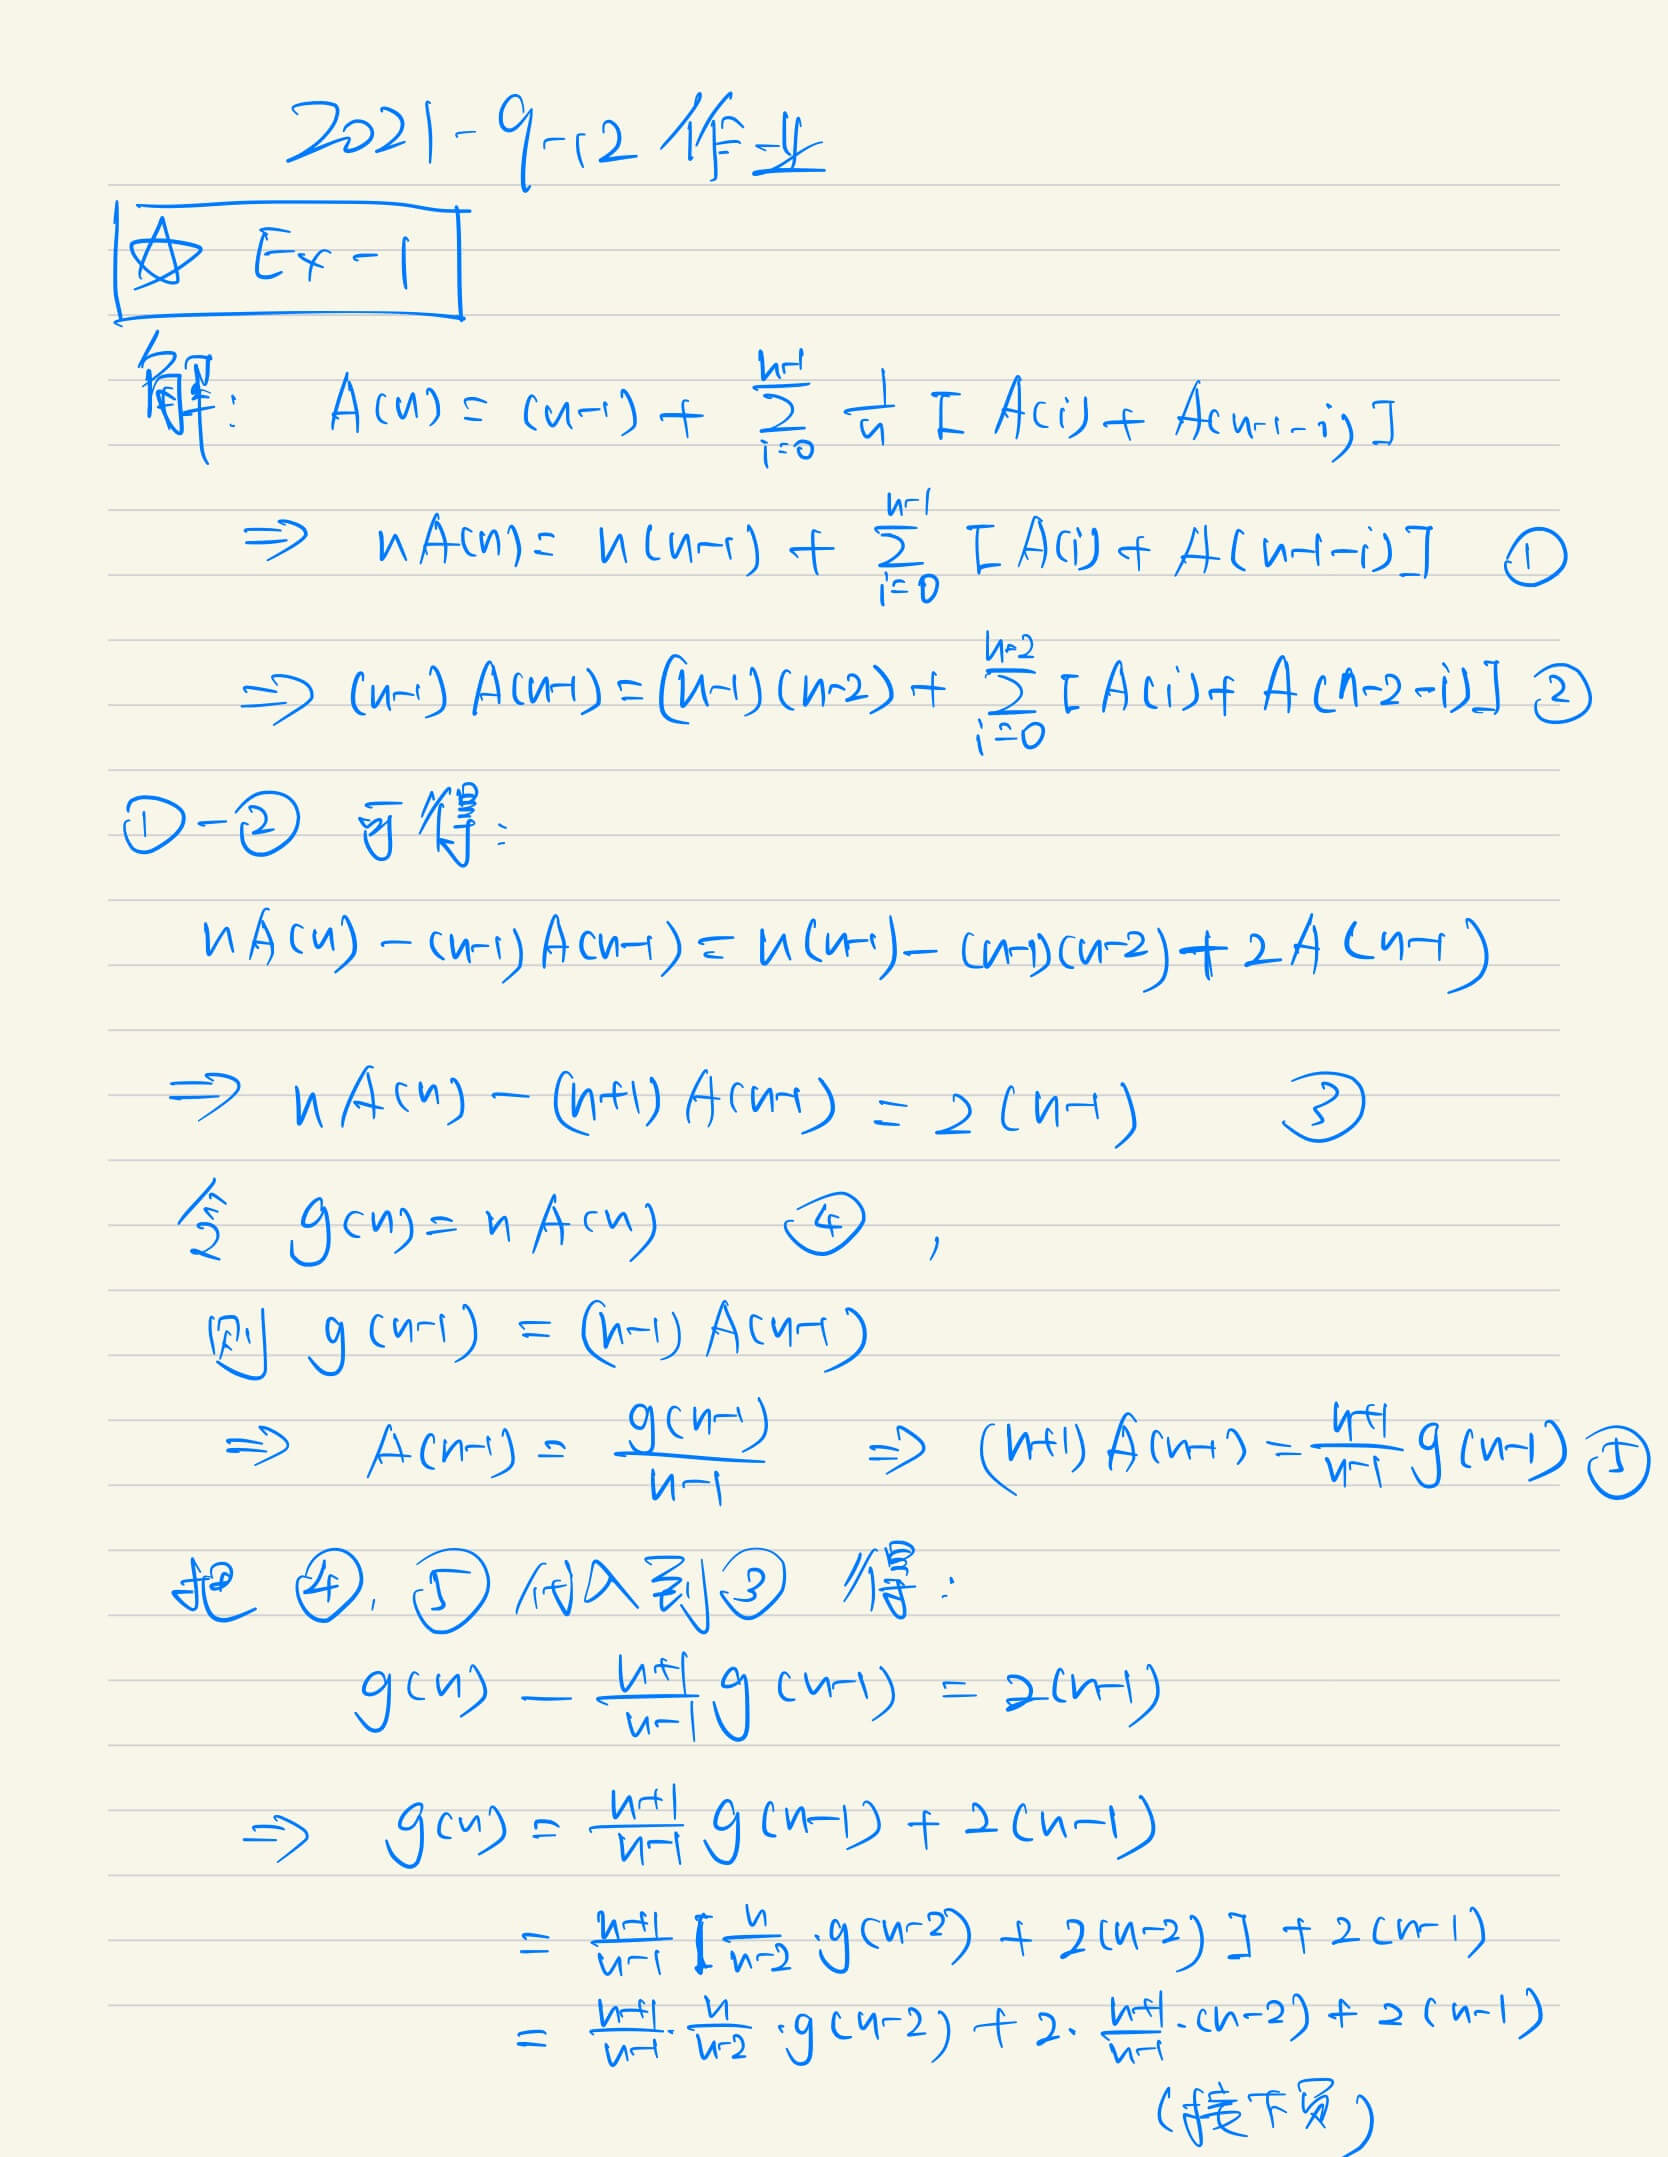 2021-9-12 作业
☆ Ex-1
解: A(n) = (n-1) + \sum_{i=0}^{n-1} \frac{1}{n} [A(i) + A(n-1-i)]
⇒ nA(n) = n(n-1) + \sum_{i=0}^{n-1} [A(i) + A(n-1-i)] ①
⇒ (n-1)A(n-1) = (n-1)(n-2) + \sum_{i=0}^{n-2} [A(i) + A(n-2-i)] ②
①-② 可得:
nA(n) - (n-1)A(n-1) = n(n-1) - (n-1)(n-2) + 2A(n-1)
⇒ nA(n) - (n+1)A(n-1) = 2(n-1) ③
令 g(n) = nA(n) ④,
则 g(n-1) = (n-1)A(n-1)
⇒ A(n-1) = \frac{g(n-1)}{n-1} ⇒ (n+1)A(n-1) = \frac{n+1}{n-1} g(n-1) ⑤
把 ④, ⑤ 代入到 ③ 得:
g(n) - \frac{n+1}{n-1} g(n-1) = 2(n-1)
⇒ g(n) = \frac{n+1}{n-1} g(n-1) + 2(n-1)
= \frac{n+1}{n-1} [\frac{n}{n-2} · g(n-2) + 2(n-2)] + 2(n-1)
= \frac{n+1}{n-1} · \frac{n}{n-2} · g(n-2) + 2 · \frac{n+1}{n-1} · (n-2) + 2(n-1)
(接下页)